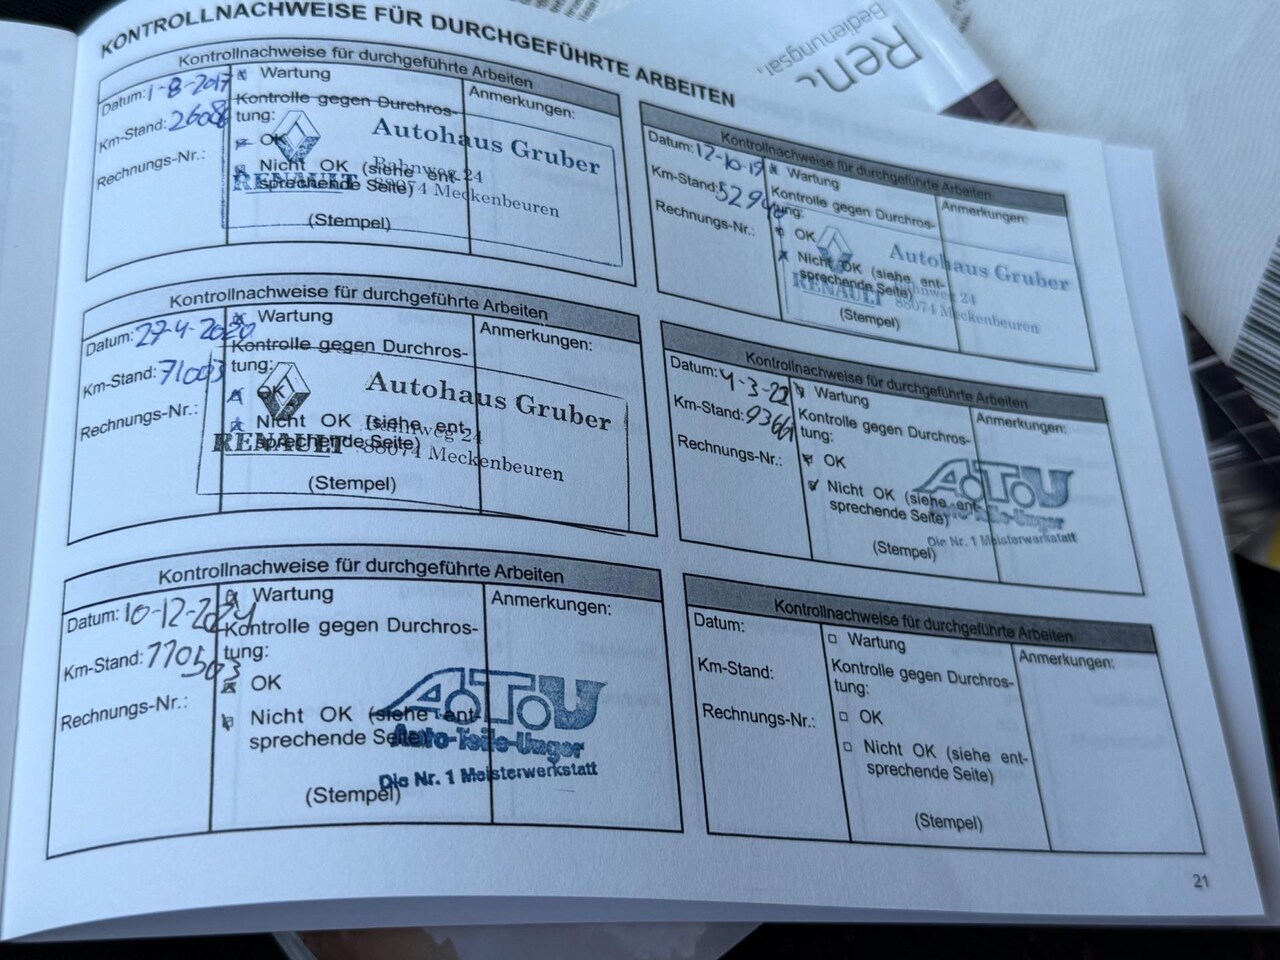 KONTROLLNACHWEISE FÜR DURCHGEFÜHRTE ARBEITEN
Kontrollnachweise für durchgeführte Arbeiten
Datum: 1-8-2017
Km-Stand:
Rechnungs-Nr.:
Wartung
Kontrolle gegen Durchros-
tung:
OK
Nicht OK (siehe ent-
sprechende Seite)
(Stempel)
Anmerkungen:
Autohaus Gruber
Bahnweg 24
RENAULT 88074 Meckenbeuren
Kontrollnachweise für durchgeführte Arbeiten
Datum: 12-10-19
Km-Stand:
Rechnungs-Nr.:
Wartung
Kontrolle gegen Durchros-
tung:
OK
Nicht OK (siehe ent-
sprechende Seite)
(Stempel)
Anmerkungen:
Autohaus Gruber
Bahnweg 24
RENAULT 88074 Meckenbeuren
Kontrollnachweise für durchgeführte Arbeiten
Datum: 27-4-2020
Km-Stand: 71003
Rechnungs-Nr.:
Wartung
Kontrolle gegen Durchros-
tung:
OK
Nicht OK (siehe ent-
sprechende Seite)
(Stempel)
Anmerkungen:
Autohaus Gruber
Bahnweg 24
RENAULT 88074 Meckenbeuren
Kontrollnachweise für durchgeführte Arbeiten
Datum: 4-3-22
Km-Stand:
Rechnungs-Nr.:
Wartung
Kontrolle gegen Durchros-
tung:
OK
Nicht OK (siehe ent-
sprechende Seite)
(Stempel)
Anmerkungen:
ATU
Auto-Teile-Unger
Die Nr. 1 Meisterwerkstatt
Kontrollnachweise für durchgeführte Arbeiten
Datum: 10-12-2024
Km-Stand:
Rechnungs-Nr.:
Wartung
Kontrolle gegen Durchros-
tung:
OK
Nicht OK (siehe ent-
sprechende Seite)
(Stempel)
Anmerkungen:
ATU
Auto-Teile-Unger
Die Nr. 1 Meisterwerkstatt
Kontrollnachweise für durchgeführte Arbeiten
Datum:
Km-Stand:
Rechnungs-Nr.:
Wartung
Kontrolle gegen Durchros-
tung:
OK
Nicht OK (siehe ent-
sprechende Seite)
(Stempel)
Anmerkungen:
21